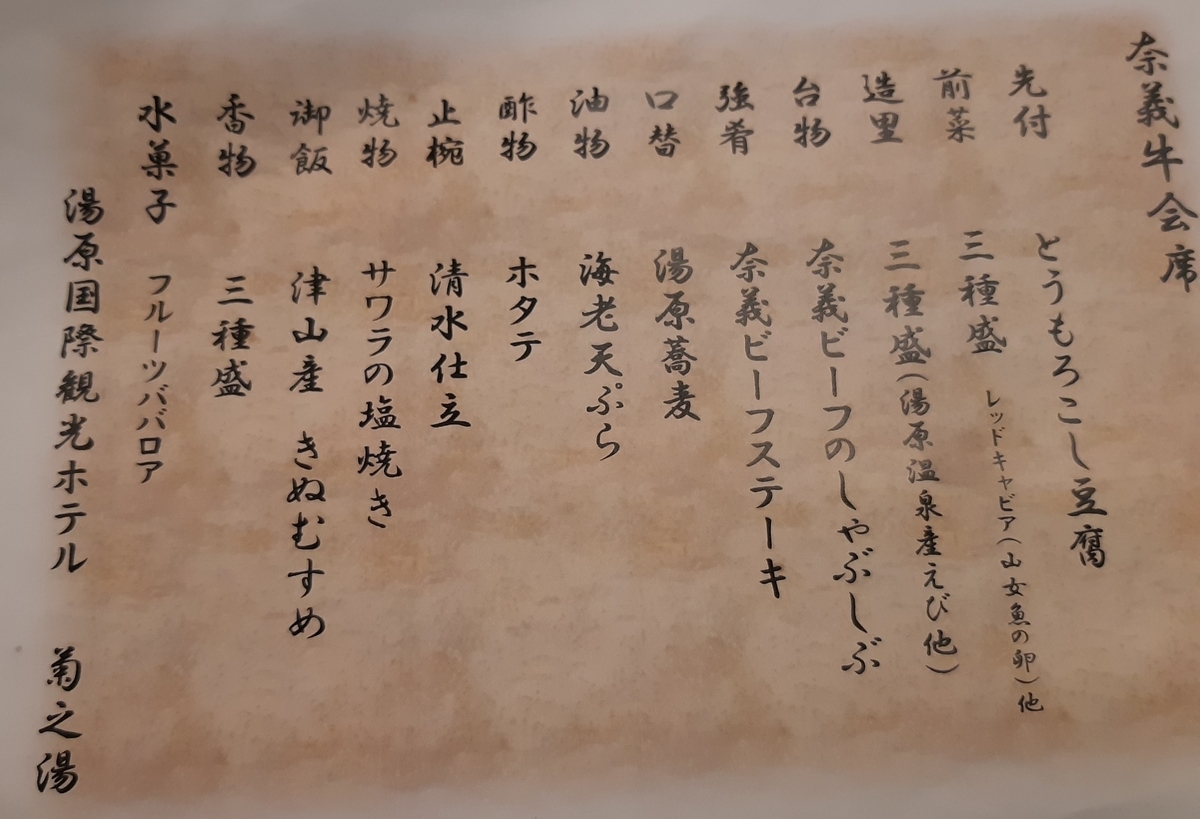 奈義牛会席
先付 とうもろこし豆腐
前菜 三種盛 レッドキャビア(山女魚の卵)他
造里 三種盛(湯原温泉産えび他)
台物 奈義ビーフのしゃぶしぶ
強肴 奈義ビーフステーキ
口替 湯原蕎麦
油物 海老天ぷら
酢物 ホタテ
止椀 清水仕立
焼物 サワラの塩焼き
御飯 津山産 きぬむすめ
香物 三種盛
水菓子 フルーツババロア
湯原国際観光ホテル 菊之湯